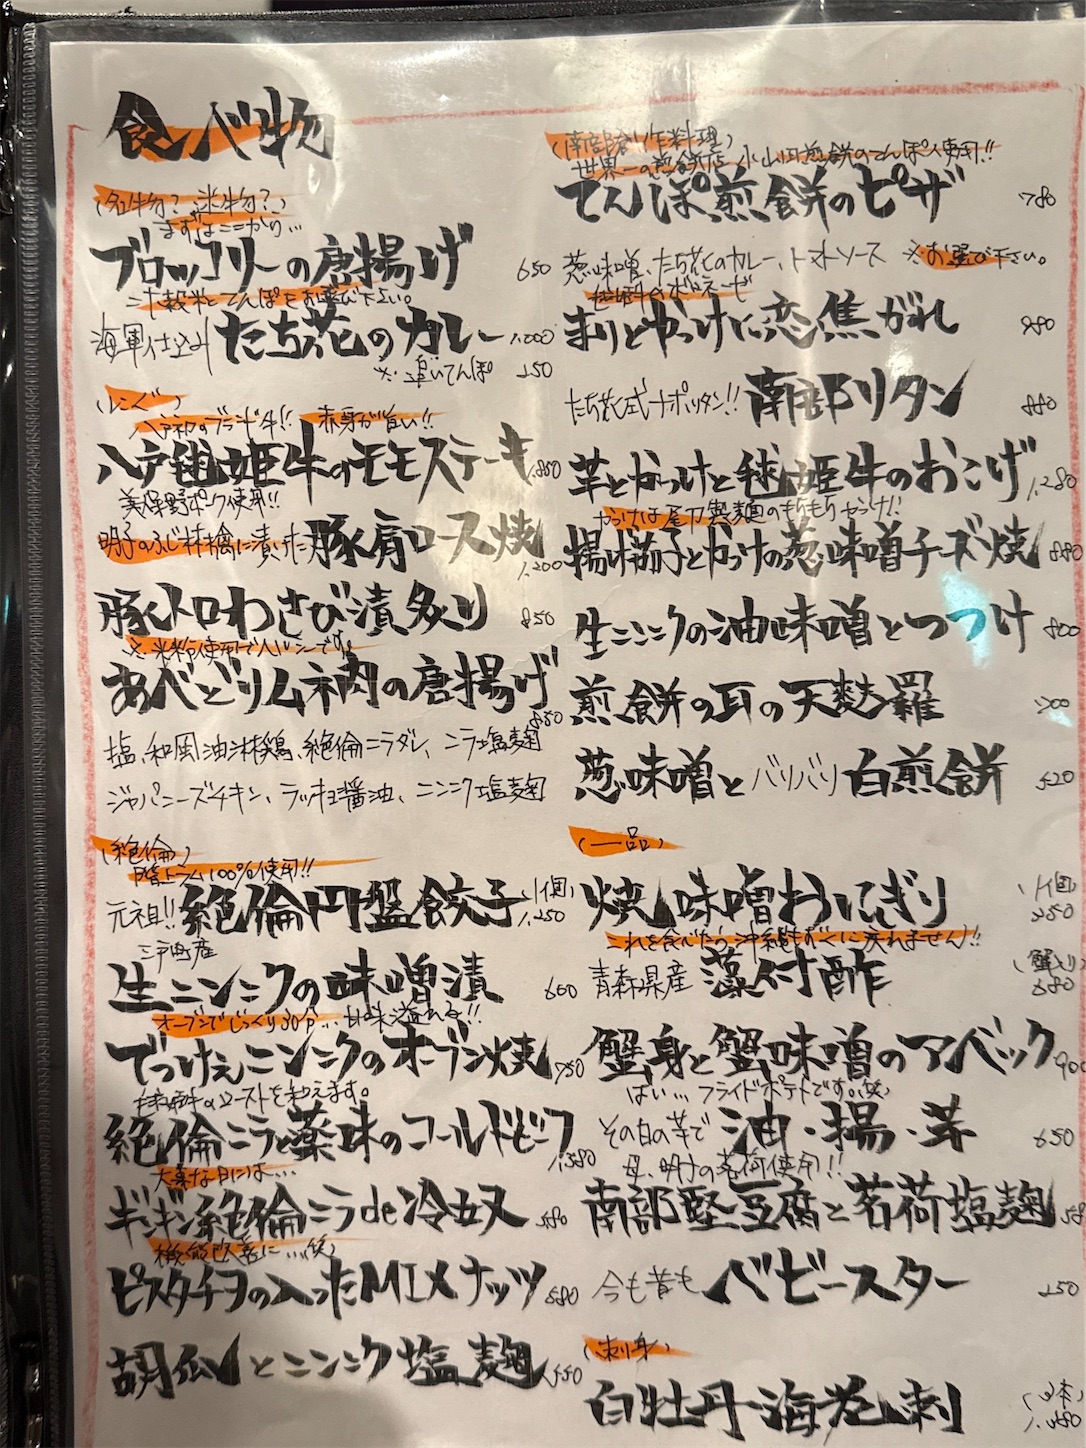 食べ物
(名物?迷物?)
まずはここから…
ブロッコリーの唐揚げ 650
二十穀米とてんぽをお選び下さい。
海軍仕込み たち花のカレー 1,000
※追いてんぽ 250
八戸初のブランド牛!! 赤身が旨い!!
八戸毬姫牛のモモステーキ 1,880
美保野ポーク使用!!
明子のふじ林檎に漬けた豚肩ロース焼 1,200
豚トロわさび漬炙り 850
※米粉使用でヘルシーです。
あべどりムネ肉の唐揚げ 850
塩、和風油淋鶏、絶倫ニラダレ、ニラ塩麹
ジャパニーズチキン、ラッキョ醤油、ニンニク塩麹
(絶倫)
階上ラム100%使用!!
元祖!! 絶倫円盤餃子 (1個) 1,250
三戸町産
生ニンニクの味噌漬 600
オーブンでじっくり30分…甘味溢れる!!
でっけぇニンニクのオーブン焼 750
絶倫ニラと薬味のコールドビーフ 1,380
大事な日には…
ギンギン絶倫ニラde冷奴 580
機能改善に…(笑)
ピスタチヲの入ったMIXナッツ 580
胡瓜とニンニク塩麹 550
(南部創作料理)
世界一の煎餅店 小山田煎餅のてんぽ使用!!
てんぽ煎餅のピザ 780
葱味噌、たち花のカレー、トマトソース ※お選び下さい。
毬姫牛ボロネーゼ
まりとかっけに恋焦がれ 980
たち花式ナポリタン!! 南部リタン 880
芋とかっけと毬姫牛のおこげ 1,280
かっけは尾刀製麺のもちもちかっけ!!
揚げ茄子とかっけの葱味噌チーズ焼 880
生ニンニクの油味噌とつつけ 800
煎餅の耳の天麩羅 500
葱味噌とバリバリ白煎餅 520
(一品)
焼味噌おにぎり (1個) 250
これを食べたら沖縄もずくに戻れません!!
青森県産 藻付酢 (蟹入り) 680
蟹身と蟹味噌のアベック 900
はい…フライドポテトです。(笑)
その日の芋で 油・揚・芋 650
母、明子の茗荷使用!!
南部堅豆腐と茗荷塩麹 58
今も昔も ベビースター 250
(刺身)
白牡丹海老刺 (3本) 1,480